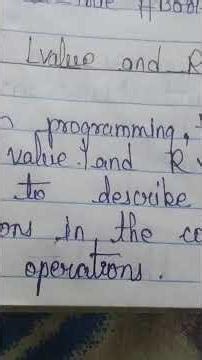 Lvalue and R
programming,
value. and R
to describe
ons in the co
operations.